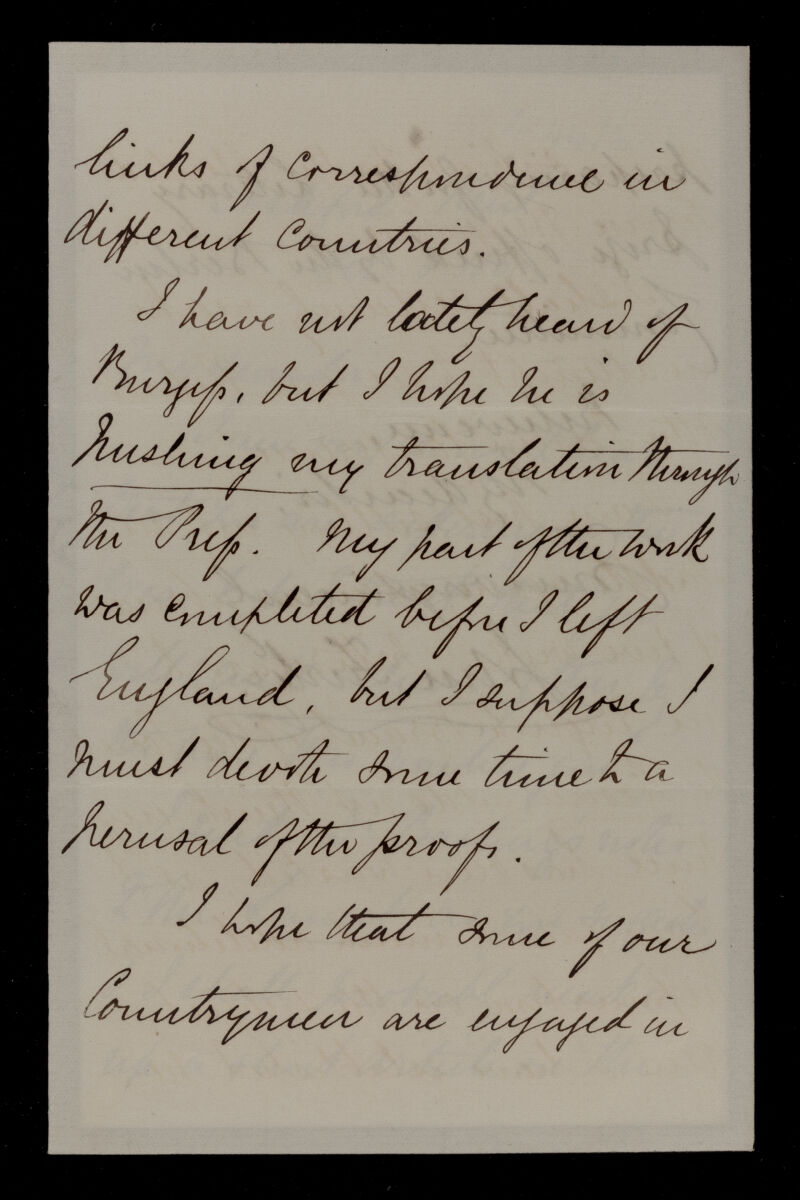 links of correspondence in
different countries.
I have not lately heard of
Burgess, but I hope he is
pushing my translation through
the Press. My part of the work
was completed before I left
England, but I suppose I
must devote some time to a
perusal of the proofs.
I hope that some of our
Countrymen are engaged in